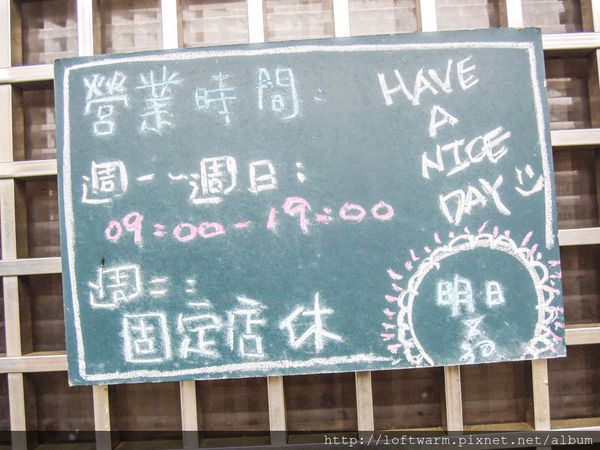 營業時間:
週一~週日:
09:00-19:00
週二:
固定店休
HAVE
A
NICE
DAY
明日
http://loftwarm.pixnet.net/album